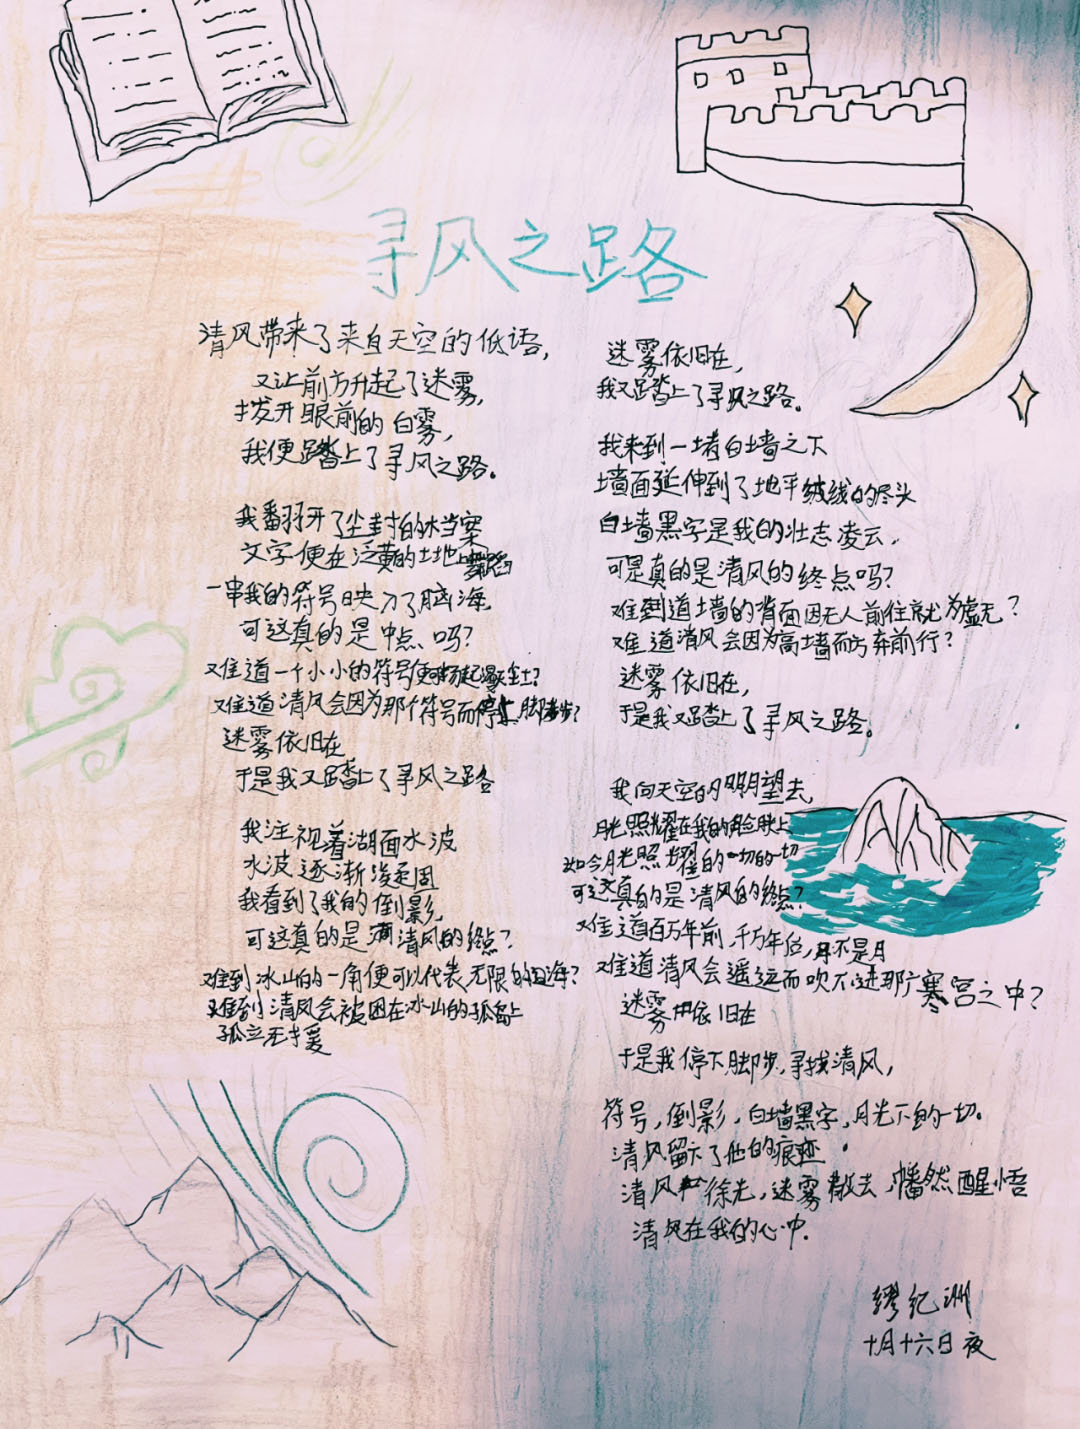 寻风之路
清风带来了来自天空的低语,
又让前方升起了迷雾,
拨开眼前的白雾,
我便踏上了寻风之路。
我翻开了尘封的档案
文字便在泛黄的土地上舞蹈
一串我的符号映入了脑海,
可这真的是中点吗?
难道一个小小的符号便扬起尘土?
难道清风会因为那个符号而停止脚步?
迷雾依旧在
于是我又踏上了寻风之路
我注视着湖面水波
水波逐渐凝固
我看到了我的倒影,
可这真的是清风的终点?
难到冰山的一角便可以代表无限的四海?
难到清风会被困在冰山的孤岛上
孤立无援
迷雾依旧在,
我又踏上了寻风之路。
我来到一堵白墙之下
墙面延伸到了地平线的尽头
白墙黑字是我的壮志凌云,
可是真的是清风的终点吗?
难道墙的背面因无人前往就为虚无?
难道清风会因为高墙而方弃前行?
迷雾依旧在,
于是我又踏上了寻风之路。
我向天空的明月望去,
月光照耀在我的脸肤上
如今月光照耀的一切的一切
可这真的是清风的终点?
难道百万年前,千万年后,月不是月
难道清风会遥远而吹不进那广寒宫之中?
迷雾依旧在
于是我停下脚步,寻找清风,
符号,倒影,白墙黑字,月光下的一切。
清风留下了他的痕迹
清风徐先,迷雾散去,幡然醒悟
清风在我的心中.
缪纪洲
十月十六日夜